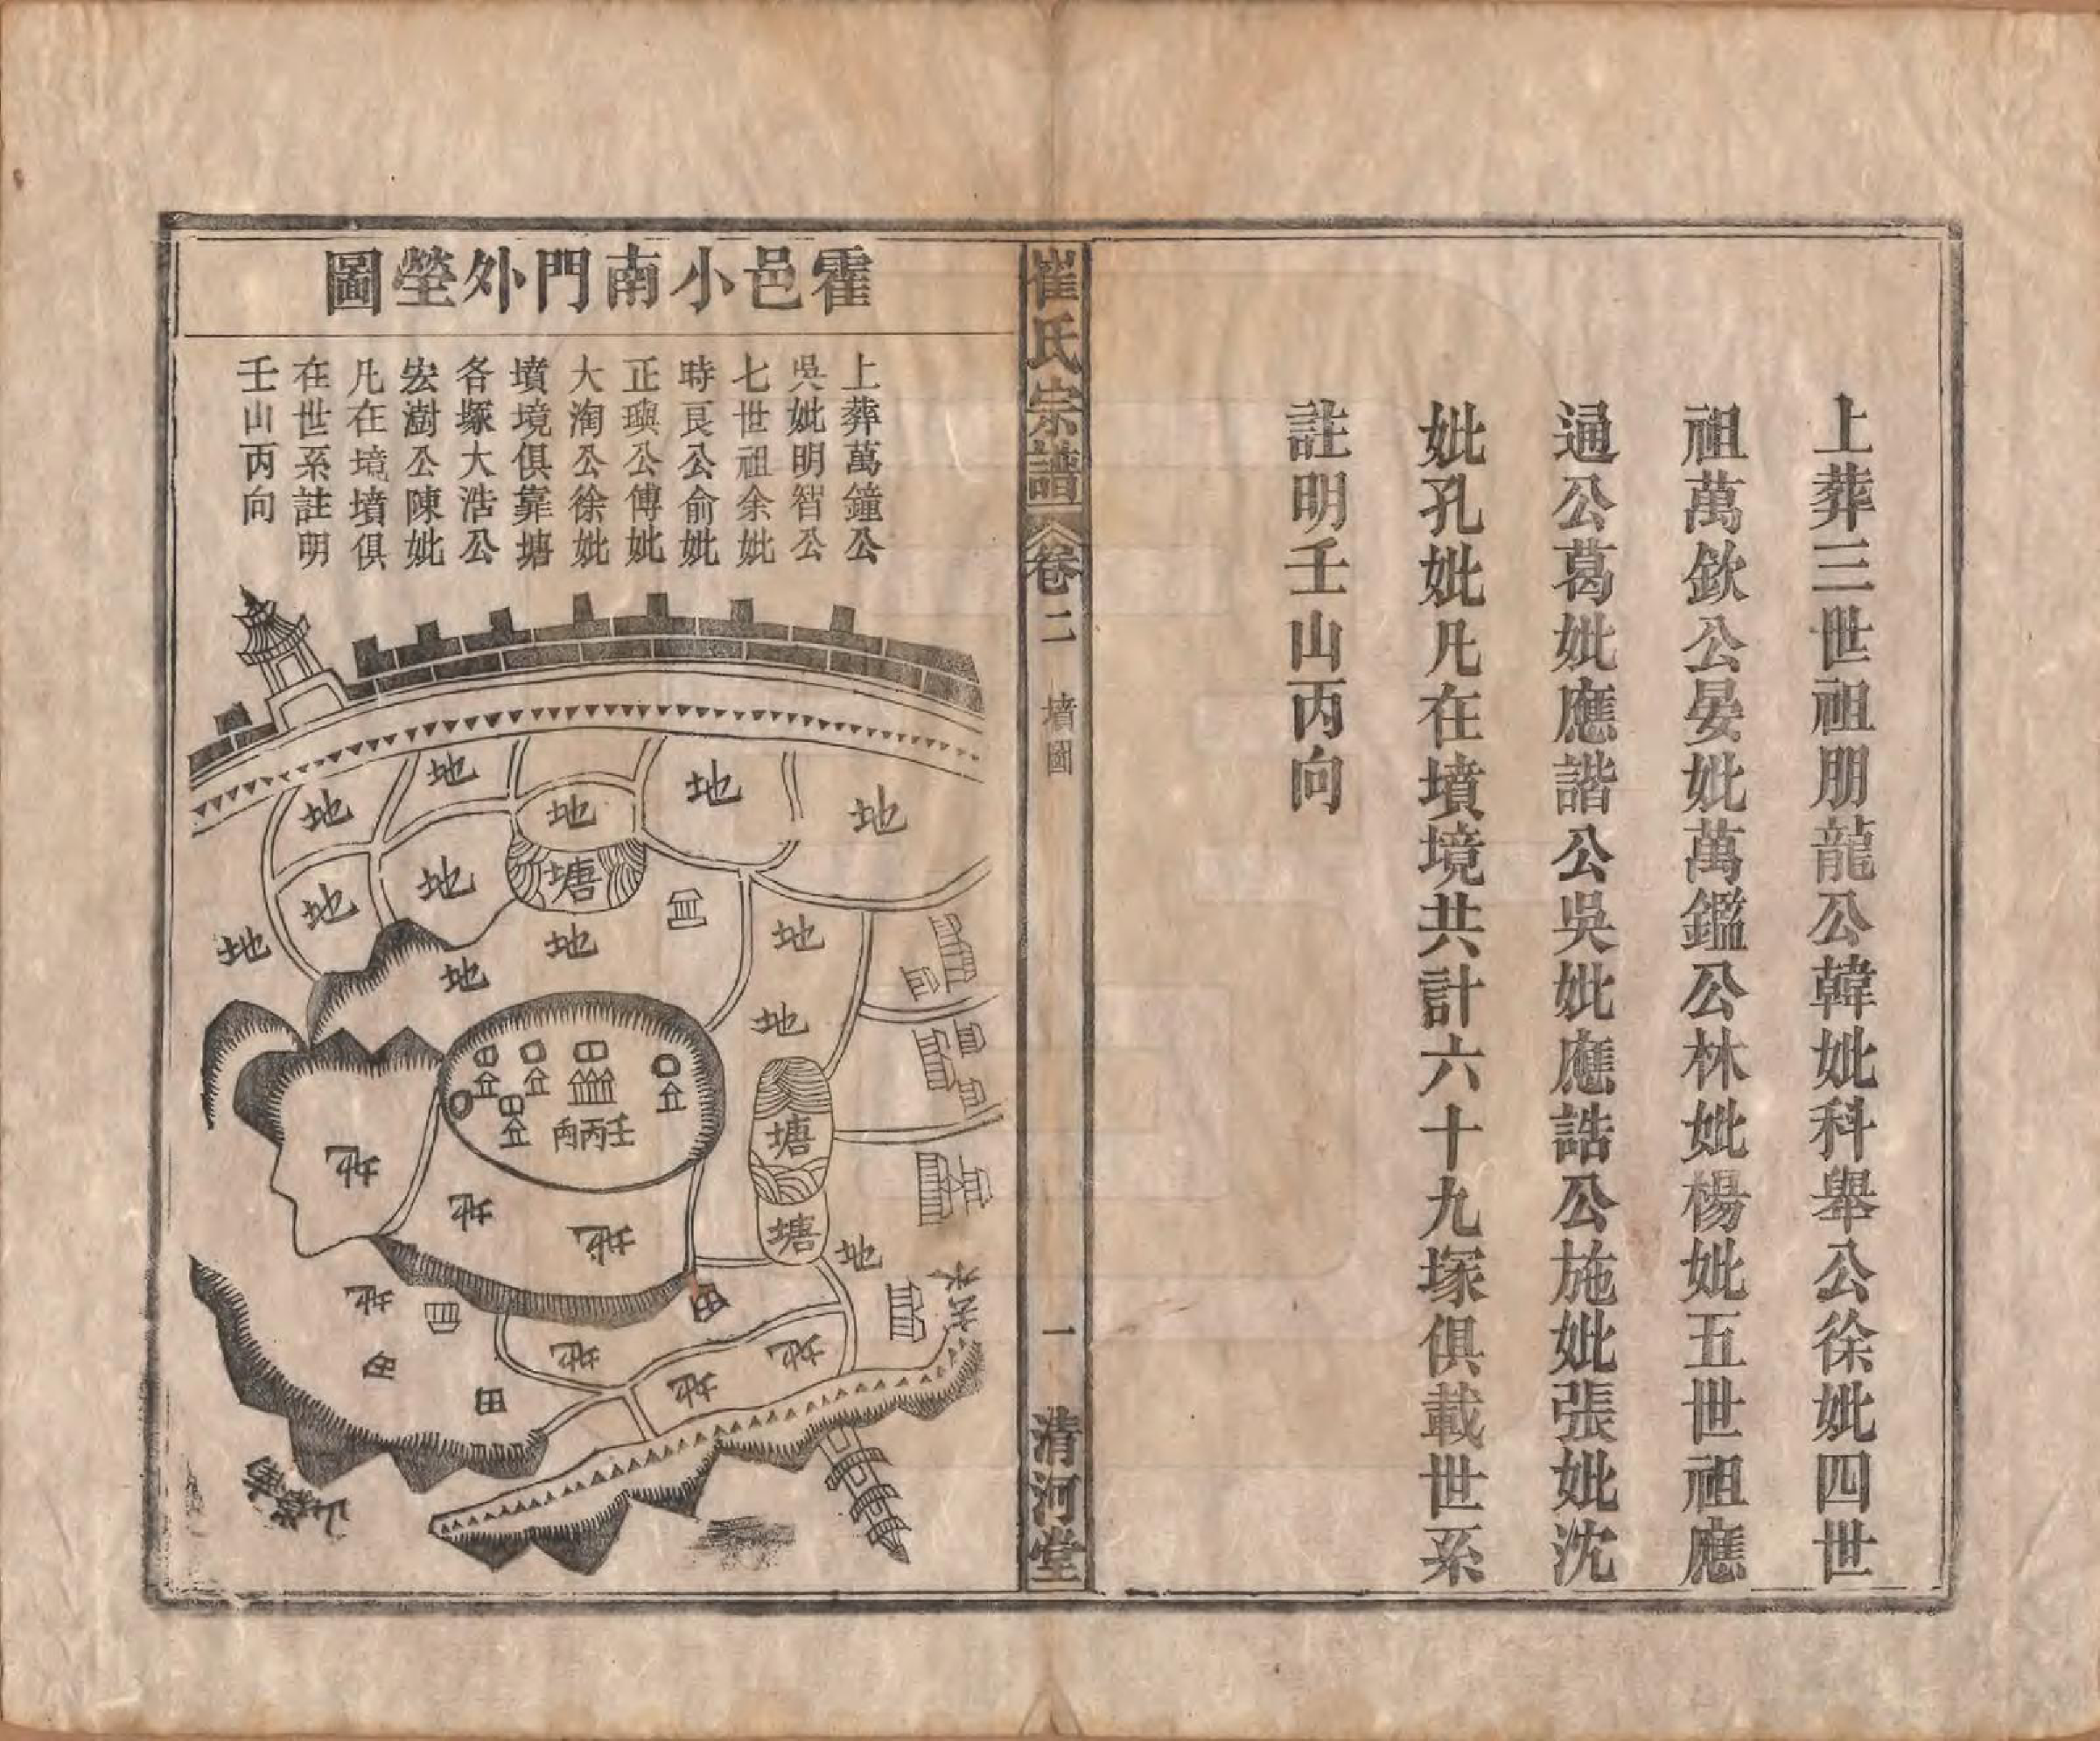 上葬三世祖朋龍公韓妣科舉公徐妣四世
祖萬欽公晏妣萬鑑公林妣楊妣五世祖應
通公葛妣應諧公吳妣應誥公施妣張妣沈
妣孔妣凡在墳境共計六十九塚俱載世系
註明壬山丙向
崔氏宗譜
卷二
墳圖
一
清河堂
霍邑小南門外塋圖
上葬萬鐘公
吳妣明智公
七世祖余妣
時良公俞妣
正璵公傅妣
大淘公徐妣
墳境俱靠塘
各塚大浩公
宏澍公陳妣
凡在境墳俱
在世系註明
壬山丙向
地
地
地
地
地
塘
地
地
地
地
地
地
地
地
壬丙向
塘
塘
地
地
地
地
田
地
地
地
地
田
田
去水